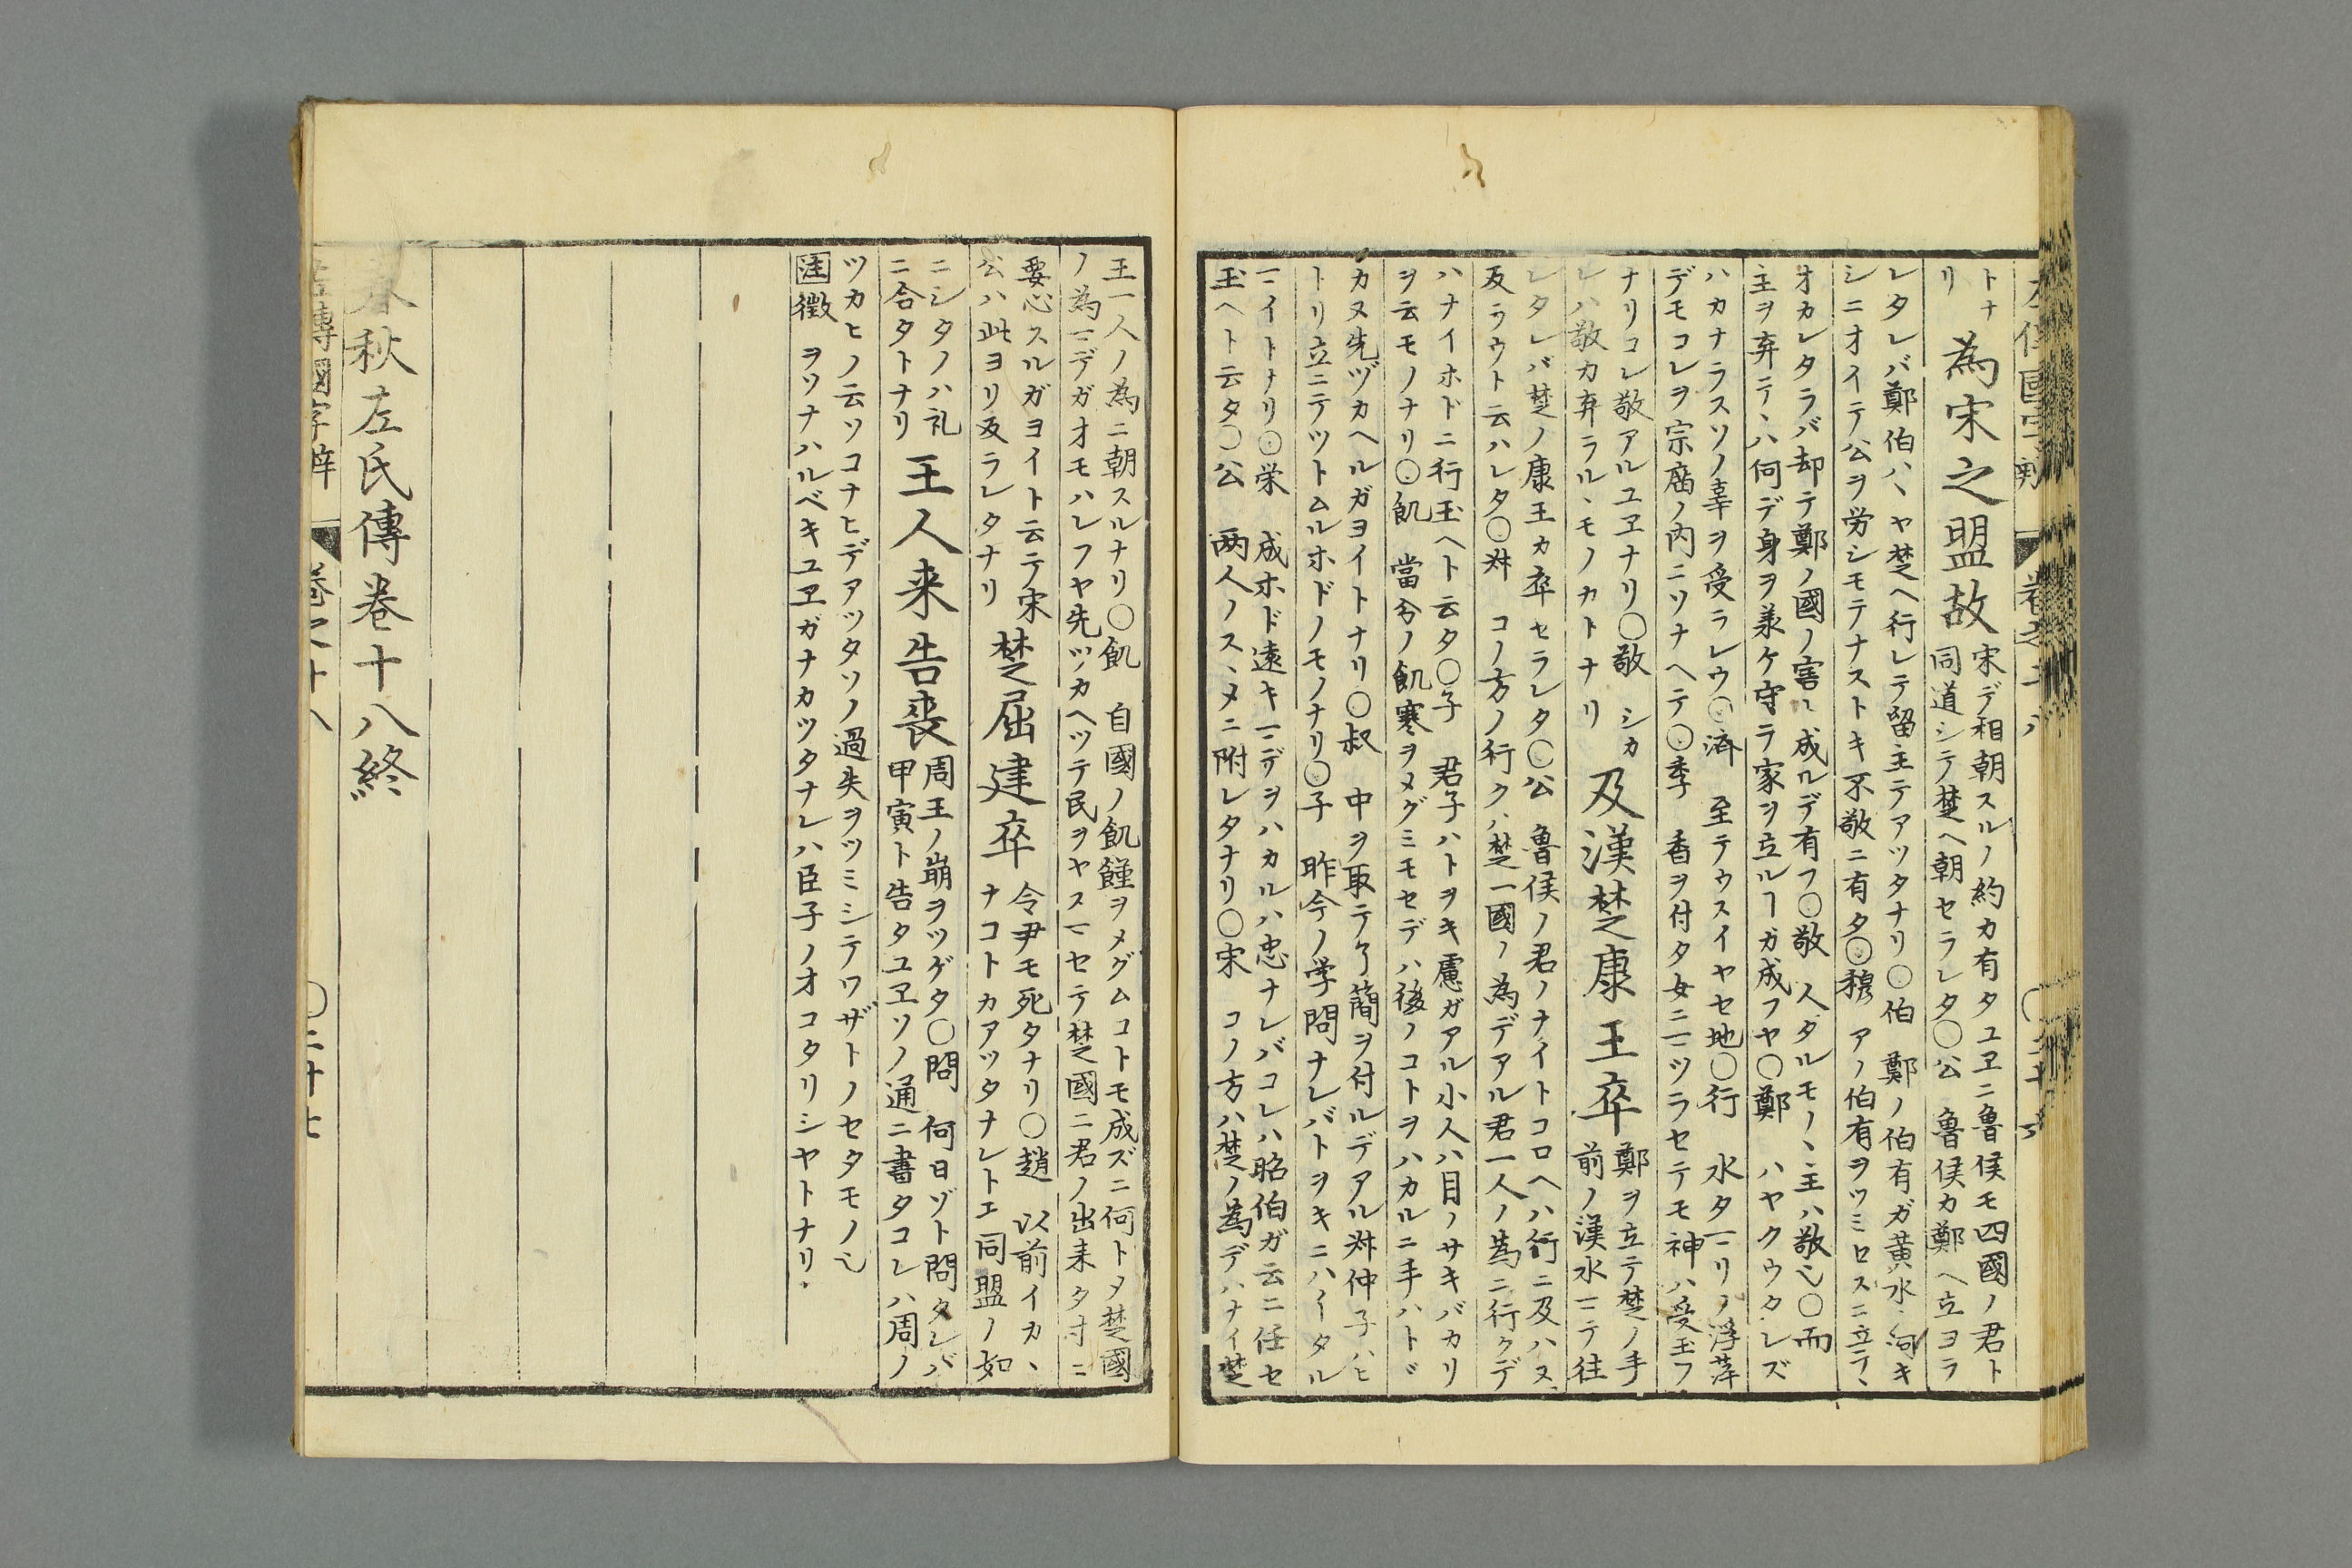 トナ
リ
為宋之盟故
宋デ相朝スルノ約カ有タユヱニ魯侯モ四國ノ君ト
同道シテ楚ヘ朝セラレタ〇公 魯侯カ鄭ヘ立ヨラ
レタレバ鄭伯ハヽヤ楚ヘ行レテ留主テアツタナリ〇伯 鄭ノ伯有ガ黄水ノ河キ
シニオイテ公ヲ労シモテナストキ不敬ニ有タ〇穆 アノ伯有ヲツミロスニ立テヽ
オカレタラバ却テ鄭ノ國ノ害ヽ成ルデ有フ〇敬 人タルモノヽ主ハ敬也〇而
主ヲ弃テヽハ何デ身ヲ羕ケ守ラ家ヲ立ルヿガ成フヤ〇鄭 ハヤクウタレズ
ハカナラスソノ辜ヲ受ラレウ〇済 至テウスイヤセ地〇行 水タマリノ浮萍
デモコレヲ宗廟ノ内ニソナヘテ〇季 香ヲ付タ女ニマツラセテモ神ハ受玉フ
ナリコレ敬アルユヱナリ〇敬 シカ
レハ敬カ弃ラルヽモノカトナリ
及漢楚康王卒
鄭ヲ立テ楚ノ手
前ノ漢水マテ往
レタレバ楚ノ康王カ卒セラレタ〇公 魯侯ノ君ノナイトコロヘハ行ニ及ハヌ
反ラウト云ハレタ〇叔 コノ方ノ行クハ楚一國ノ為デアル君一人ノ為ニ行クデ
ハナイホドニ行玉ヘト云タ〇子 君子ハトヲキ慮ガアル小人ハ目ノサキバカリ
ヲ云モノナリ〇飢 當今ノ飢寒ヲメグミモセデハ後ノコトヲハカルニ手ハトヾ
カヌ先ヅカヘルガヨイトナリ〇叔 中ヲ取テケ簡ヲ付ルデアル叔仲子ハヒ
トリ立ニテツトムルホドノモノナリ〇子 昨今ノ学問ナレバトヲキニハイタル
マイトナリ〇栄 成ホド遠キマデヲハカルハ忠ナレバコレハ昭伯ガ云ニ任セ
玉ヘト云タ〇公 両人ノスヽメニ附レタナリ〇宋 コノ方ハ楚ノ為デハナイ楚
王一人ノ為ニ朝スルナリ〇飢 自國ノ飢饉ヲメグムコトモ成ズニ何トメ楚國
ノ為マデガオモハレフヤ先ツカヘツテ民ヲヤスマセテ楚國ニ君ノ出来タ寸ニ
要心スルガヨイト云テ宋
公ハ此ヨリ反ラレタナリ
楚屈建卒
令尹モ死タナリ〇趙 以前イカヽ
ナコトカアツタナレトエ同盟ノ如
ニシタノハ礼
ニ合タトナリ
王人来告喪
周王ノ崩ヲツゲタ〇問 何日ヅト問タレバ
甲寅ト告タユヱソノ通ニ書タコレハ周ノ
ツカヒノ云ソコナヒデアツタソノ過失ヲツミシテワザトノセタモノ也
注徴 ヲソナハルベキユヱガナカツタナレハ臣子ノオコタリシヤトナリ
春秋左氏傳巻十八終
左傳國字辯 巻之十八 〇二十七